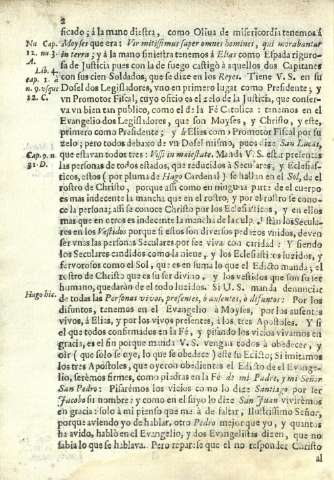 2
ficado; á la mano diestra, como Oliua de misericordia tenemos á
Nu Cap. Moyses que era: Vir mitissimus super omnes homines, qui morabantur
12. nu. 3. in terra; y á la mano siniestra tenemos á Elias como Espada riguro-
A. sa de Justicia pues con la de fuego castigó à aquellos dos Capitanes
Lib. 4.
cap. 1. con sus cien Soldados, que se dize en los Reyes. Tiene V. S. en su
n. 9. usque Dosel dos Legisladores, vno en primero lugar como Presidente; y
12. C. vn Promotor Fiscal, cuyo oficio es el zelo de la Justicia, que conser-
va vn bien tan publico, como el de la Fé Catolica: tenemos en el
Evangelio dos Legisladores, que son Moyses, y Christo, y este,
primero como Presidente; y à Elias como Promotor Fiscal por su
zelo; pero todos debaxo de vn Dosel mismo, pues dize San Lucas,
Cap. 9. n. que estavan todos tres: Vissi in maiestate. Manda V. S. estén presentes
31. D. las personas de todos estados, que reducidos à Seculares, y Eclesias-
ticos, estos (por pluma de Hugo Cardenal) se hallan en el Sol, de el
rostro de Christo, porque assi como en ninguna parte de el cuerpo
es mas indecente la mancha que en el rostro, y por el rostro se cono-
ce la persona; assi se conoce Christo por los Eclesiasticos, y en ellos
mas que en otros es indecente la mancha de la culpa. Están los Secula-
res en los Vestidos porque si estos son diversos pedazos vnidos, deven
ser vnas las personas Seculares por fee viva con caridad: Y siendo
los Seculares candidos como la nieve, y los Eclesiasticos luzidos, y
fervorosos como el Sol, que es en suma lo que el Edicto manda; el
rostro de Christo que es su ser divino, y los vestidos que son su ser
humano, quedarán de el todo luzidos. Si V. S. manda denunciar
Hugo hic. de todas las Personas vivas, presentes, ò ausentes, ò difuntas: Por los
difuntos, tenemos en el Evangelio à Moyses, por los ausentes
vivos, á Elias, y por los vivos presentes, á los tres Apostoles. Y si
el que todos confirmados en la Fé, y pisando los vicios vivamos en
gracia, es el fin porque manda V. S. vengan todos à obedecer, y
oir (que solo se oye, lo que se obedece) este su Edicto; Si imitamos
los tres Apostoles, que oyeron obedientes el Edicto de el Evange-
lio, serèmos firmes, como piedras en la Fé de mi Padre, y mi Señor
San Pedro: Pisaremos los vicios como lo dize Santiago por ser
Jacobo su nombre; y como en el suyo lo dize San Juan vivirèmos
en gracia: solo à mi pienso que me à de faltar, Ilustrissimo Señor,
porque aviendo yo de hablar, otro Pedro mejor que yo, y quantos
ha avido, habló en el Evangelio, y dos Evangelistas dizen, que no
sabia lo que se hablava. Pero reparese que el no responder Christo
al